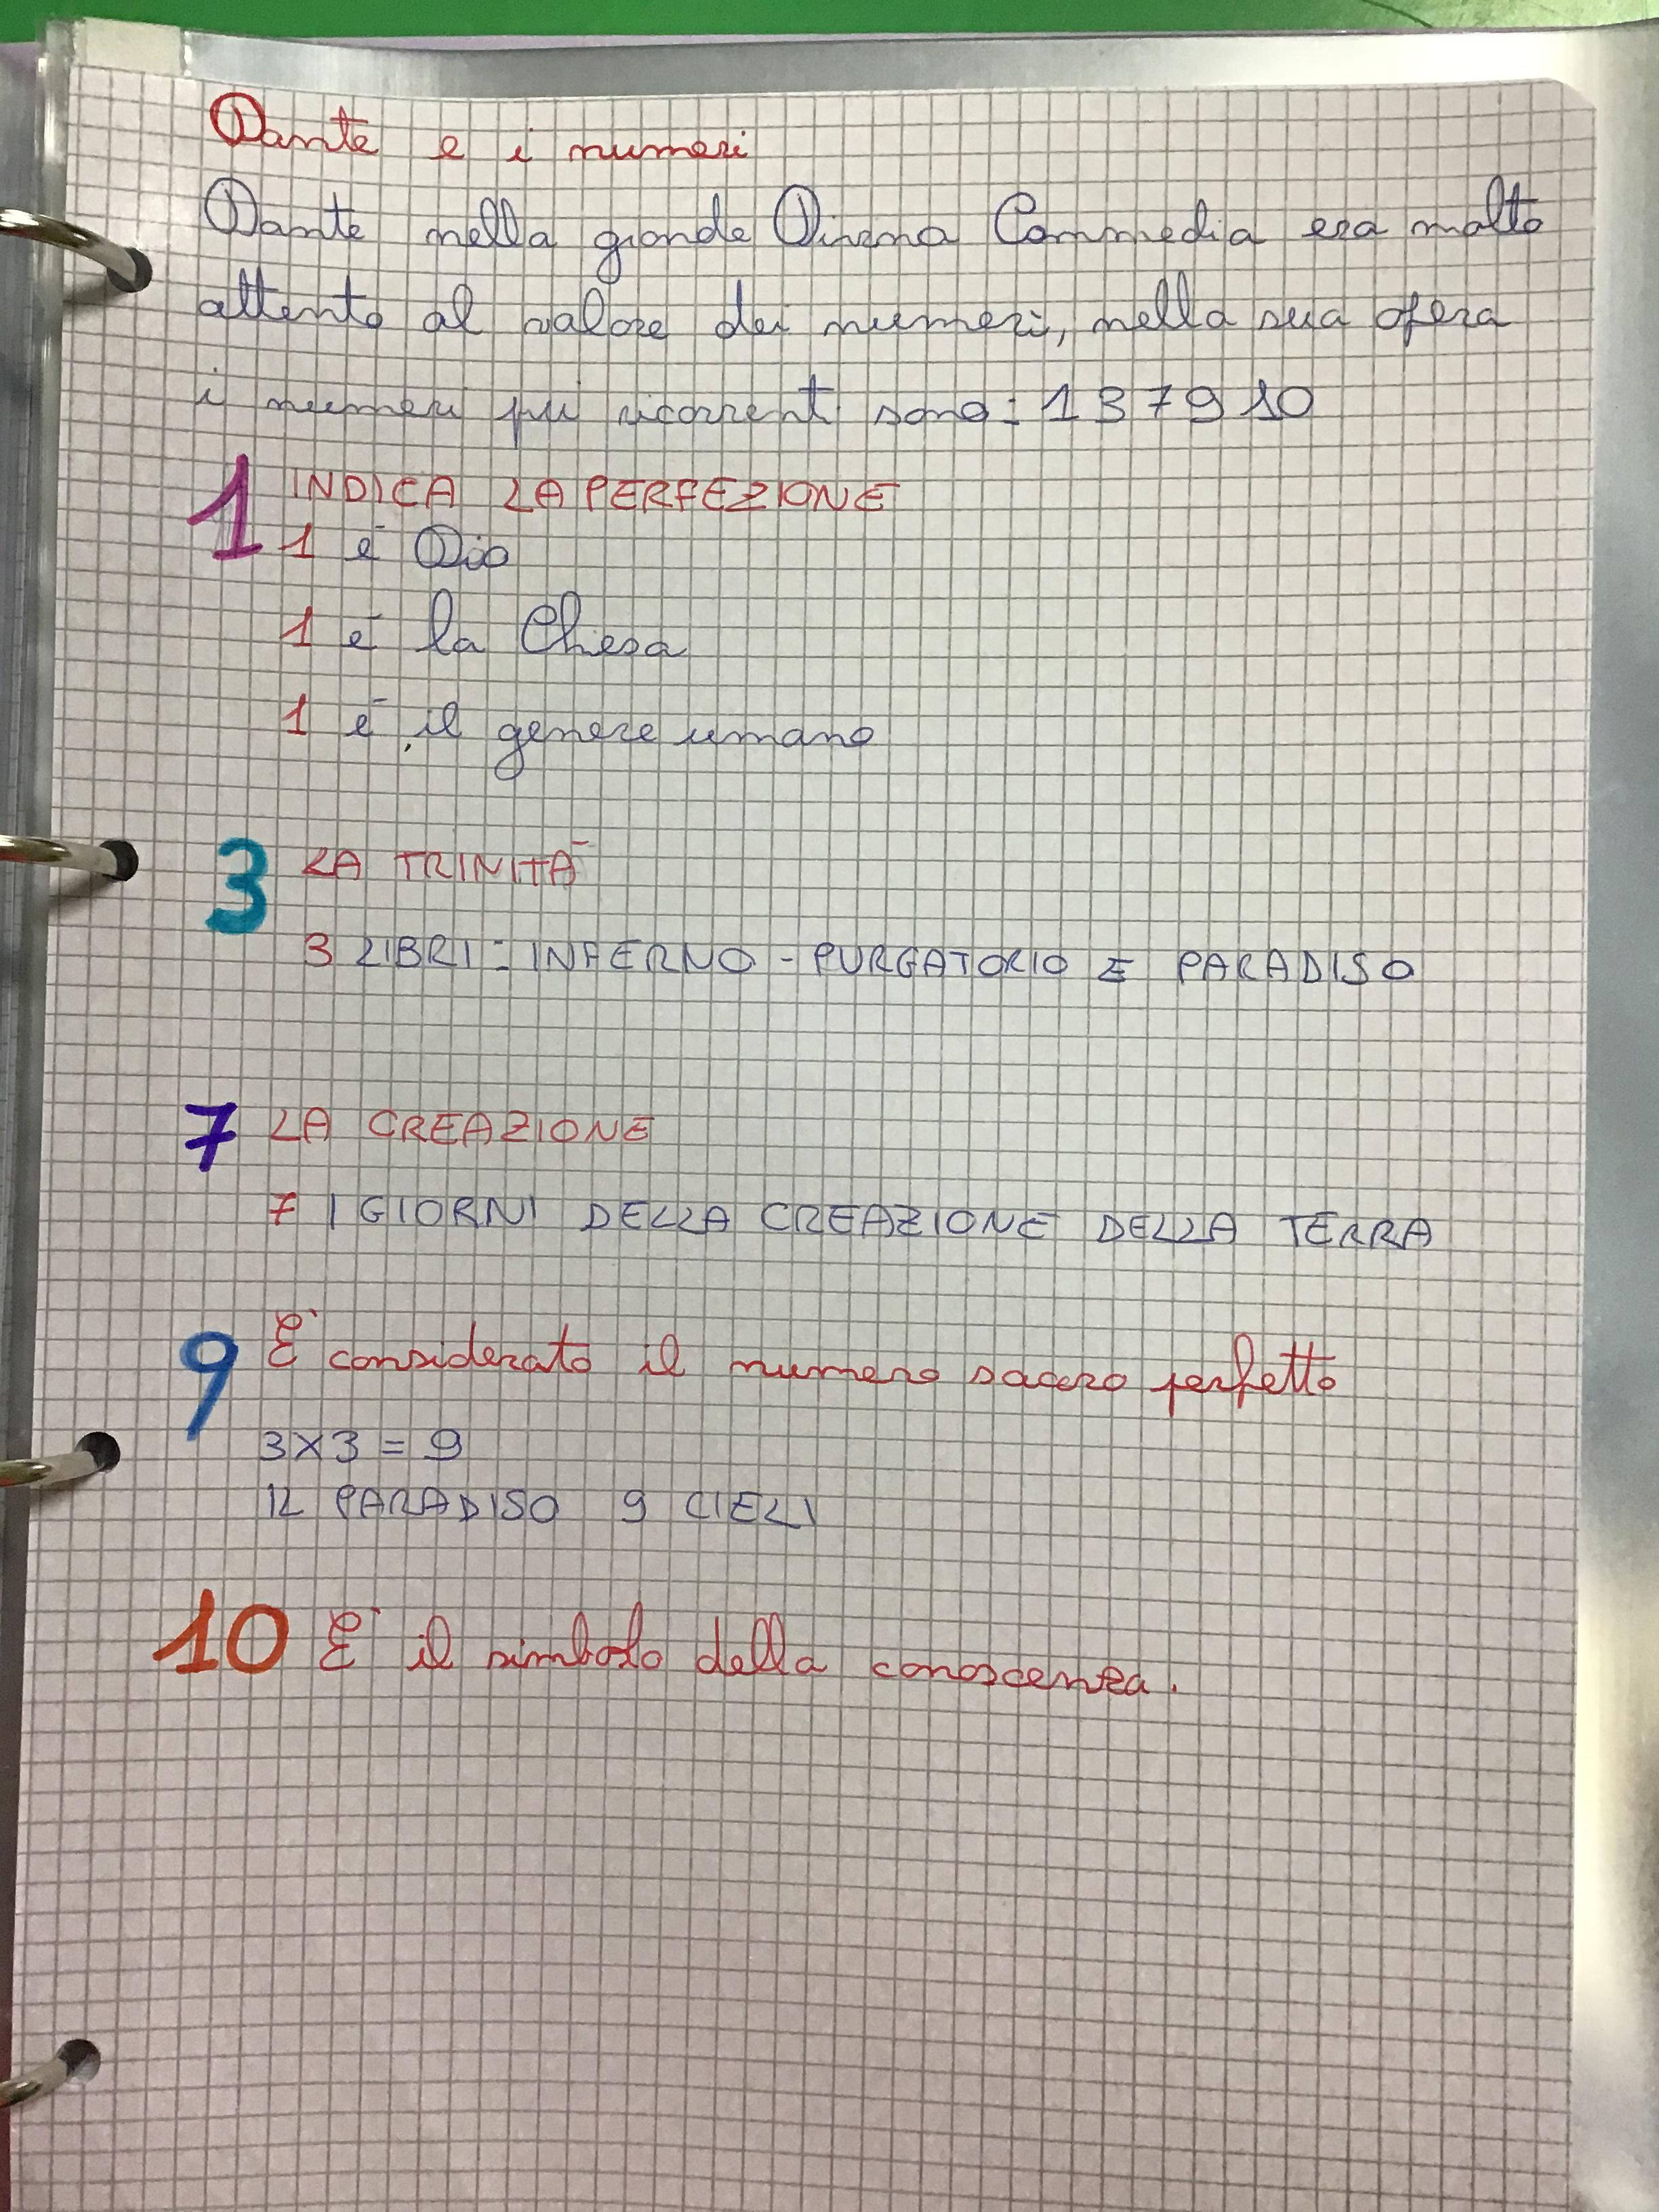 Dante e i numeri
Dante nella grande Divina Commedia era molto
attento al valore dei numeri, nella sua opera
i numeri più ricorrenti sono: 1 3 7 9 10
1 INDICA LA PERFEZIONE
1 è Dio
1 è la Chiesa
1 è il genere umano
3 LA TRINITÀ
3 LIBRI: INFERNO - PURGATORIO E PARADISO
7 LA CREAZIONE
7 I GIORNI DELLA CREAZIONE DELLA TERRA
9 È considerato il numero sacro perfetto
3X3 = 9
IL PARADISO 9 CIELI
10 È il simbolo della conoscenza.